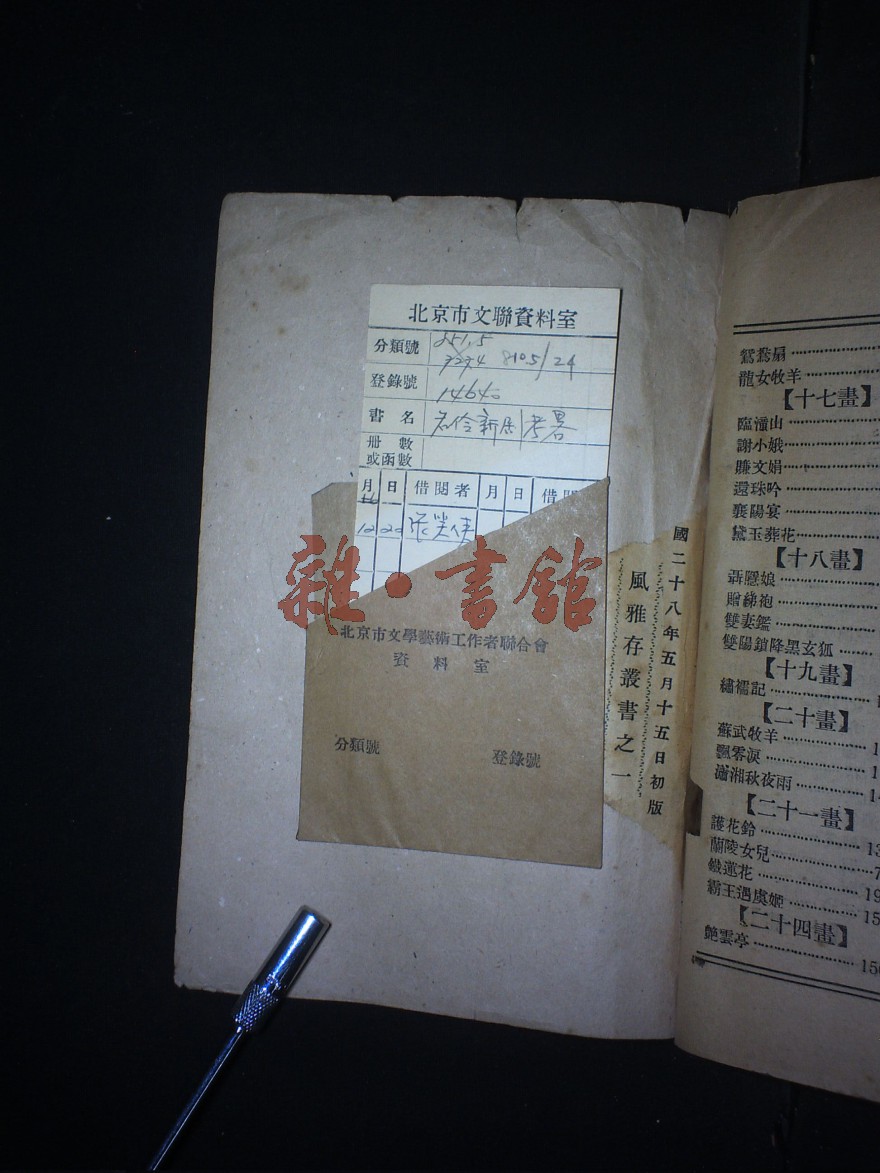 北京市文聯資料室
分類號 851.5
7234 8105/24
登錄號 14640
書名 名伶新劇考畧
冊數
或函數
月 日 借閱者 月 日 借閱
12 20
雜·書館
北京市文學藝術工作者聯合會
資料室
分類號 登錄號
國二十八年五月十五日初版
風雅存叢書之一
鴛鴦扇
龍女牧羊
【十七畫】
臨潼山
謝小娥
賺文娟
還珠吟
襄陽宴
黛玉葬花
【十八畫】
聶隱娘
贈綈袍
雙妻鑑
雙陽鎖降黑玄狐
【十九畫】
繡襦記
【二十畫】
蘇武牧羊
飄零淚
瀟湘秋夜雨
【二十一畫】
護花鈴
蘭陵女兒
鐵蓮花
霸王遇虞姬
【二十四畫】
艷雲亭